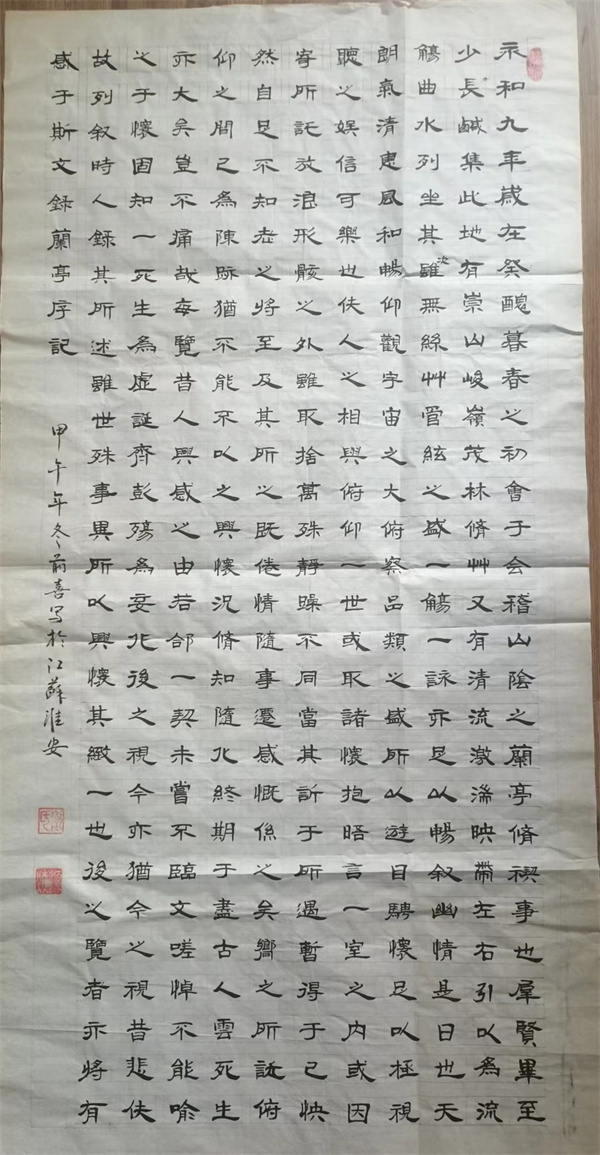 永和九年歲在癸醜暮春之初會于会稽山陰之蘭亭脩禊事也羣賢畢至
少長鹹集此地有崇山峻嶺茂林脩艸又有清流激湍映帶左右引以為流
觴曲水列坐其次雖無絲艸管絃之盛一觴一詠亦足以暢叙幽情是日也天
朗氣清惠風和暢仰觀字宙之大俯察品類之盛所以遊目騁懷足以極視
聽之娛信可樂也伕人之相與俯仰一世或取諸懷抱晤言一室之内或因
寄所託放浪形骸之外雖取捨萬殊靜躁不同當其訢于所遇暫得于己怏
然自足不知老之將至及其所之既倦情隨事遷感慨係之矣嚮之所訢俯
仰之間已為陳跡猶不能不以之興懷況脩知隨化終期于盡古人雲死生
亦大矣豈不痛哉每覽昔人興感之由若郃一契未嘗不臨文嗟悼不能喻
之于懷固知一死生為虛誕齊彭殤為妄化後之視今亦猶今之視昔悲伕
故列叙時人錄其所述雖世殊事異所以興懷其緻一也後之覽者亦將有
感于斯文録蘭亭序記
甲午年冬前喜写於江蘇淮安